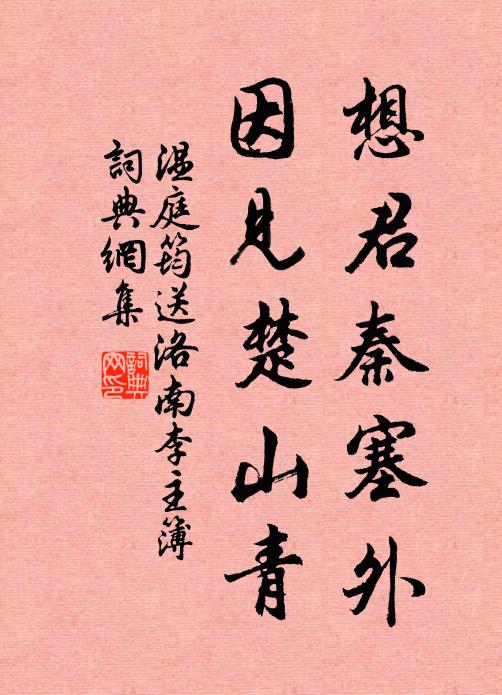 想君秦塞外
因見楚山青
温庭筠送洛南李主簿
詞典網集
詞典網印